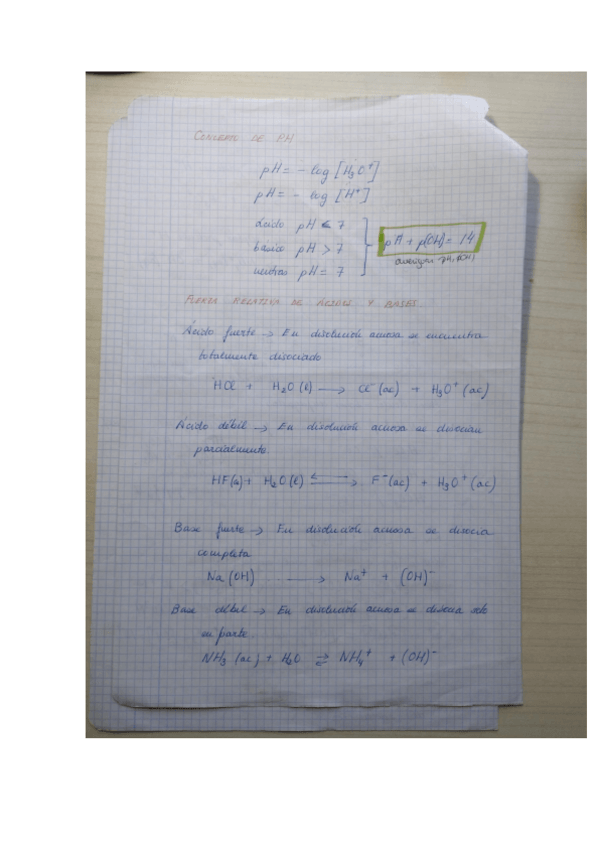 CONCEPTO DE PH
pH = - log [H₃O⁺]
pH = - log [H⁺]
ácido pH < 7
básico pH > 7
neutro pH = 7
pH + p(OH) = 14
FUERZA RELATIVA DE ÁCIDOS Y BASES.
Ácido fuerte → En disolución acuosa se encuentra
totalmente disociado
HCl + H₂O (l) → Cl⁻ (ac) + H₃O⁺ (ac)
Ácido débil → En disolución acuosa se disocian
parcialmente
HF(a) + H₂O (l) ⇄ F⁻ (ac) + H₃O⁺ (ac)
Base fuerte → En disolución acuosa se disocia
completa
Na (OH) → Na⁺ + (OH)⁻
Base débil → En disolución acuosa se disocia solo
en parte.
NH₃ (ac) + H₂O ⇄ NH₄⁺ + (OH)⁻